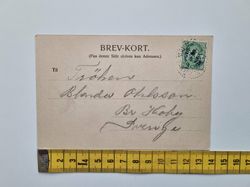 BREV-KORT.
(Paa denne Side skrives kun Adressen.)
Til
Fröken
Blenda Ohlsson
Br. Hoby
Sverige
1 2 3 4 5 6 7 8 9 10 11 12 13 14 15 16